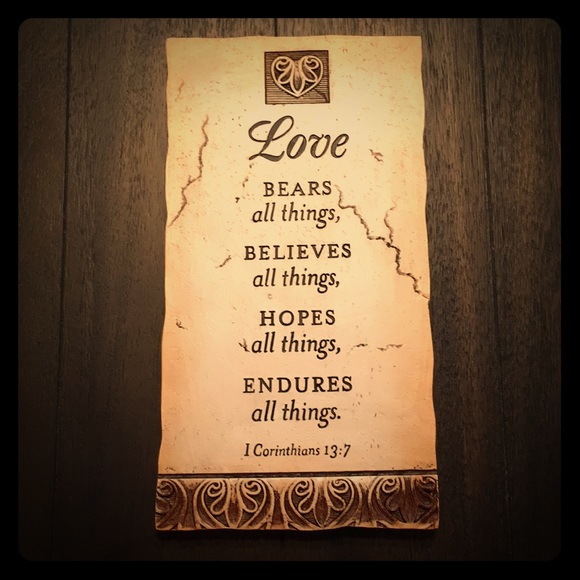 Love
BEARS
all things,
BELIEVES
all things,
HOPES
all things,
ENDURES
all things.
I Corinthians 13:7